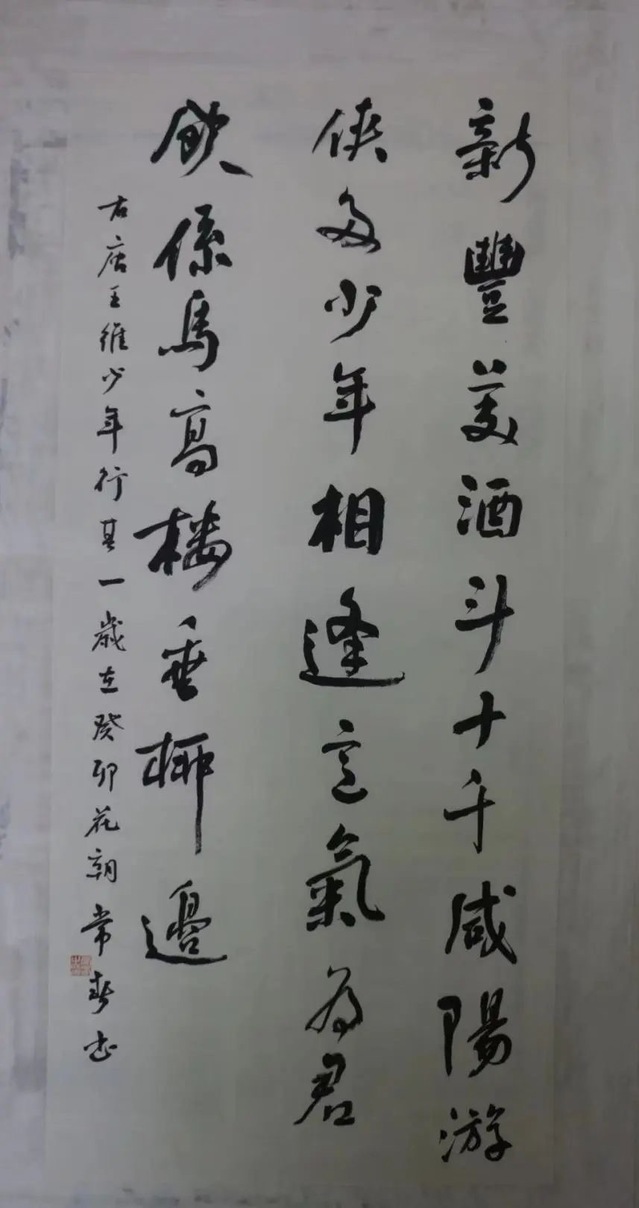 新豐美酒斗十千咸陽游
俠多少年相逢意氣為君
飲係馬高樓垂柳邊
右唐王維少年行其一歲在癸卯花朝常春书